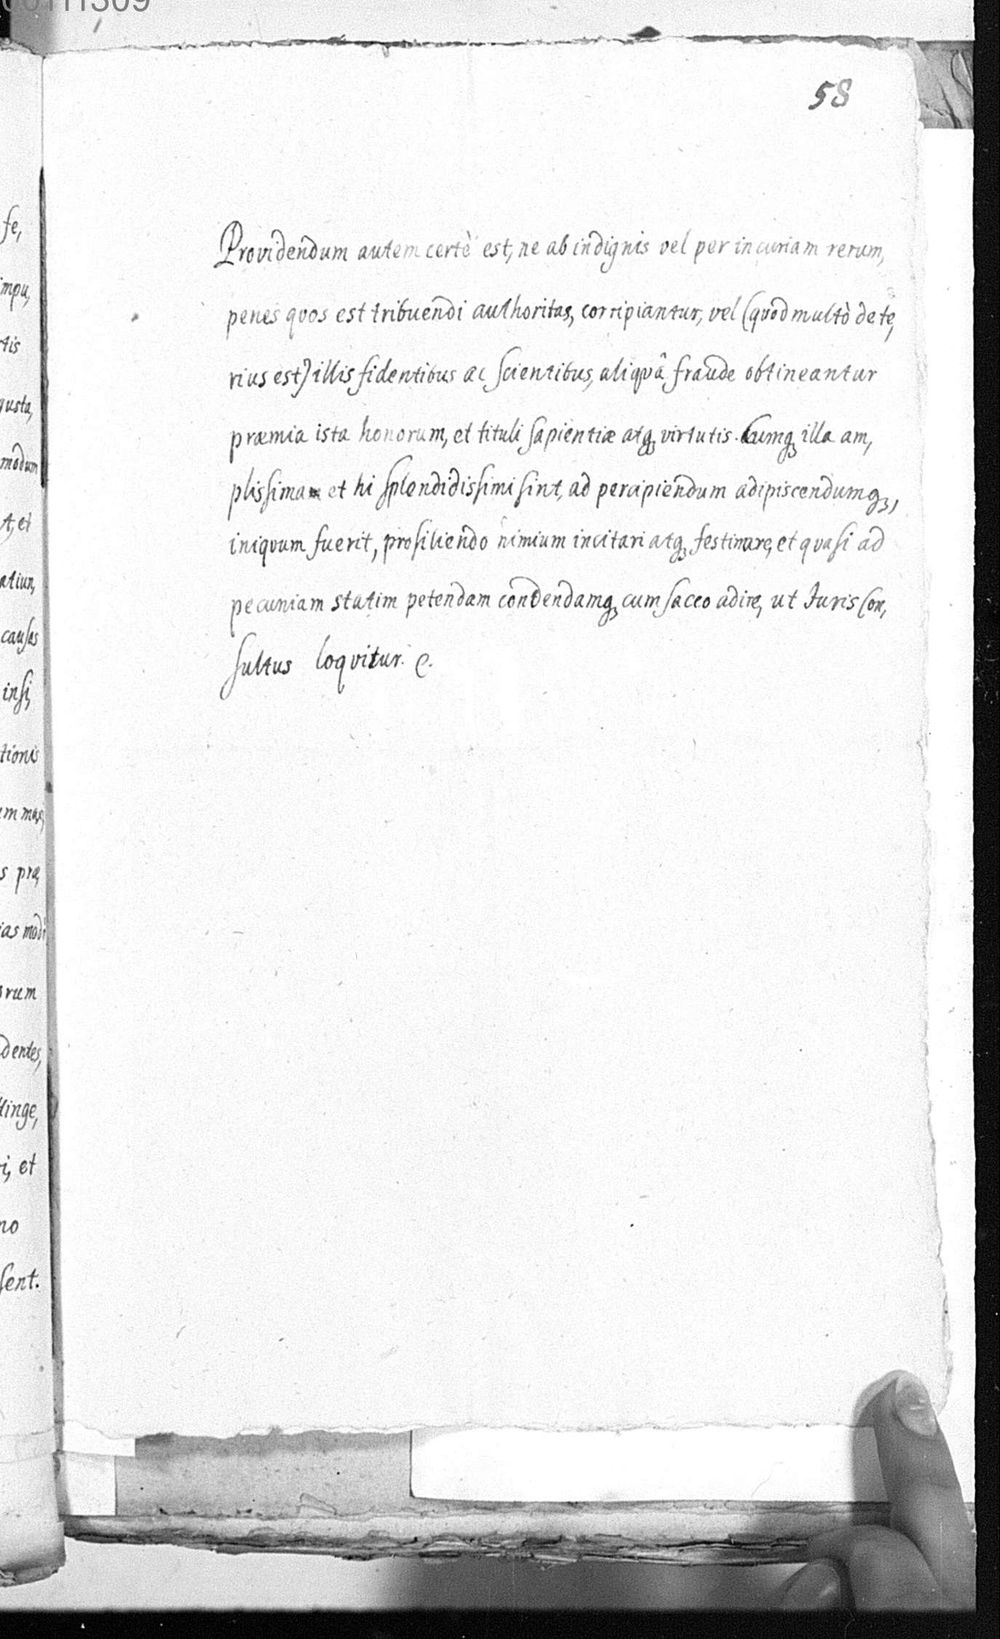 58
Providendum autem certè est, ne ab indignis vel per incuriam rerum,
penes quos est tribuendi authoritas, corripiantur, vel (quod multò dete,
rius est) illis fidentibus ac scientibus, aliquâ fraude obtineantur
præmia ista honorum, et tituli sapientiæ atq; virtutis. Cumq; illa am,
plissima et hi splendidissimi sint, ad percipiendum adipiscendumq;,
iniquum fuerit, prosiliendo nimium incitari atq; festinare, et quasi ad
pecuniam statim petendam contendamq; cum sacco adire, ut Juris Con,
sultus loquitur.
fe,
impu,
tis
gusta,
modum
t, et
atiun,
causas
insi,
tionis
em mas,
s præ,
ias modi
orum
dentes,
tinge,
i, et
no
sent.